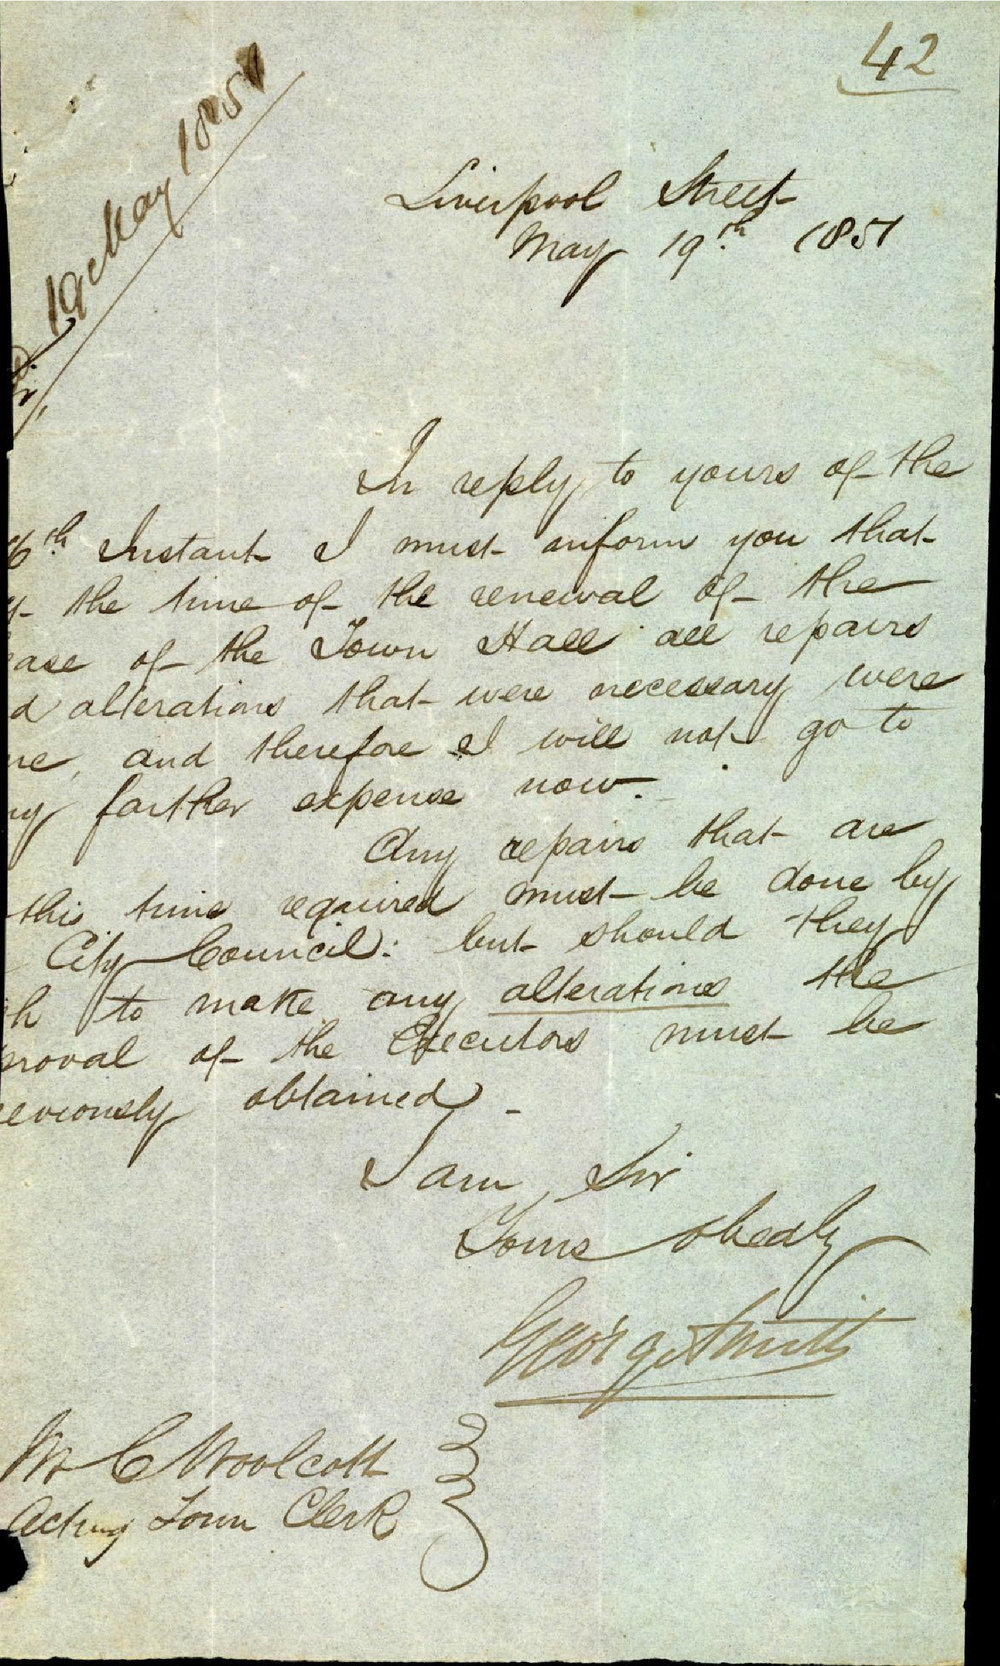 42
19 May 1851
Liverpool Street
May 19th. 1851
Sir,
In reply to yours of the
6th. Instant I must inform you that
the time of the renewal of the
ease of the Town Hall all repairs
d alterations that were necessary were
ne, and therefore I will not go to
ny farther expense now.
Any repairs that are
this time required must be done by
City Council: but should they
h to make any alterations the
proval of the Executors must be
reviously obtained -
I am Sir
Yours obedly
George Smith
Mr C Woolcott
Acting Town Clerk